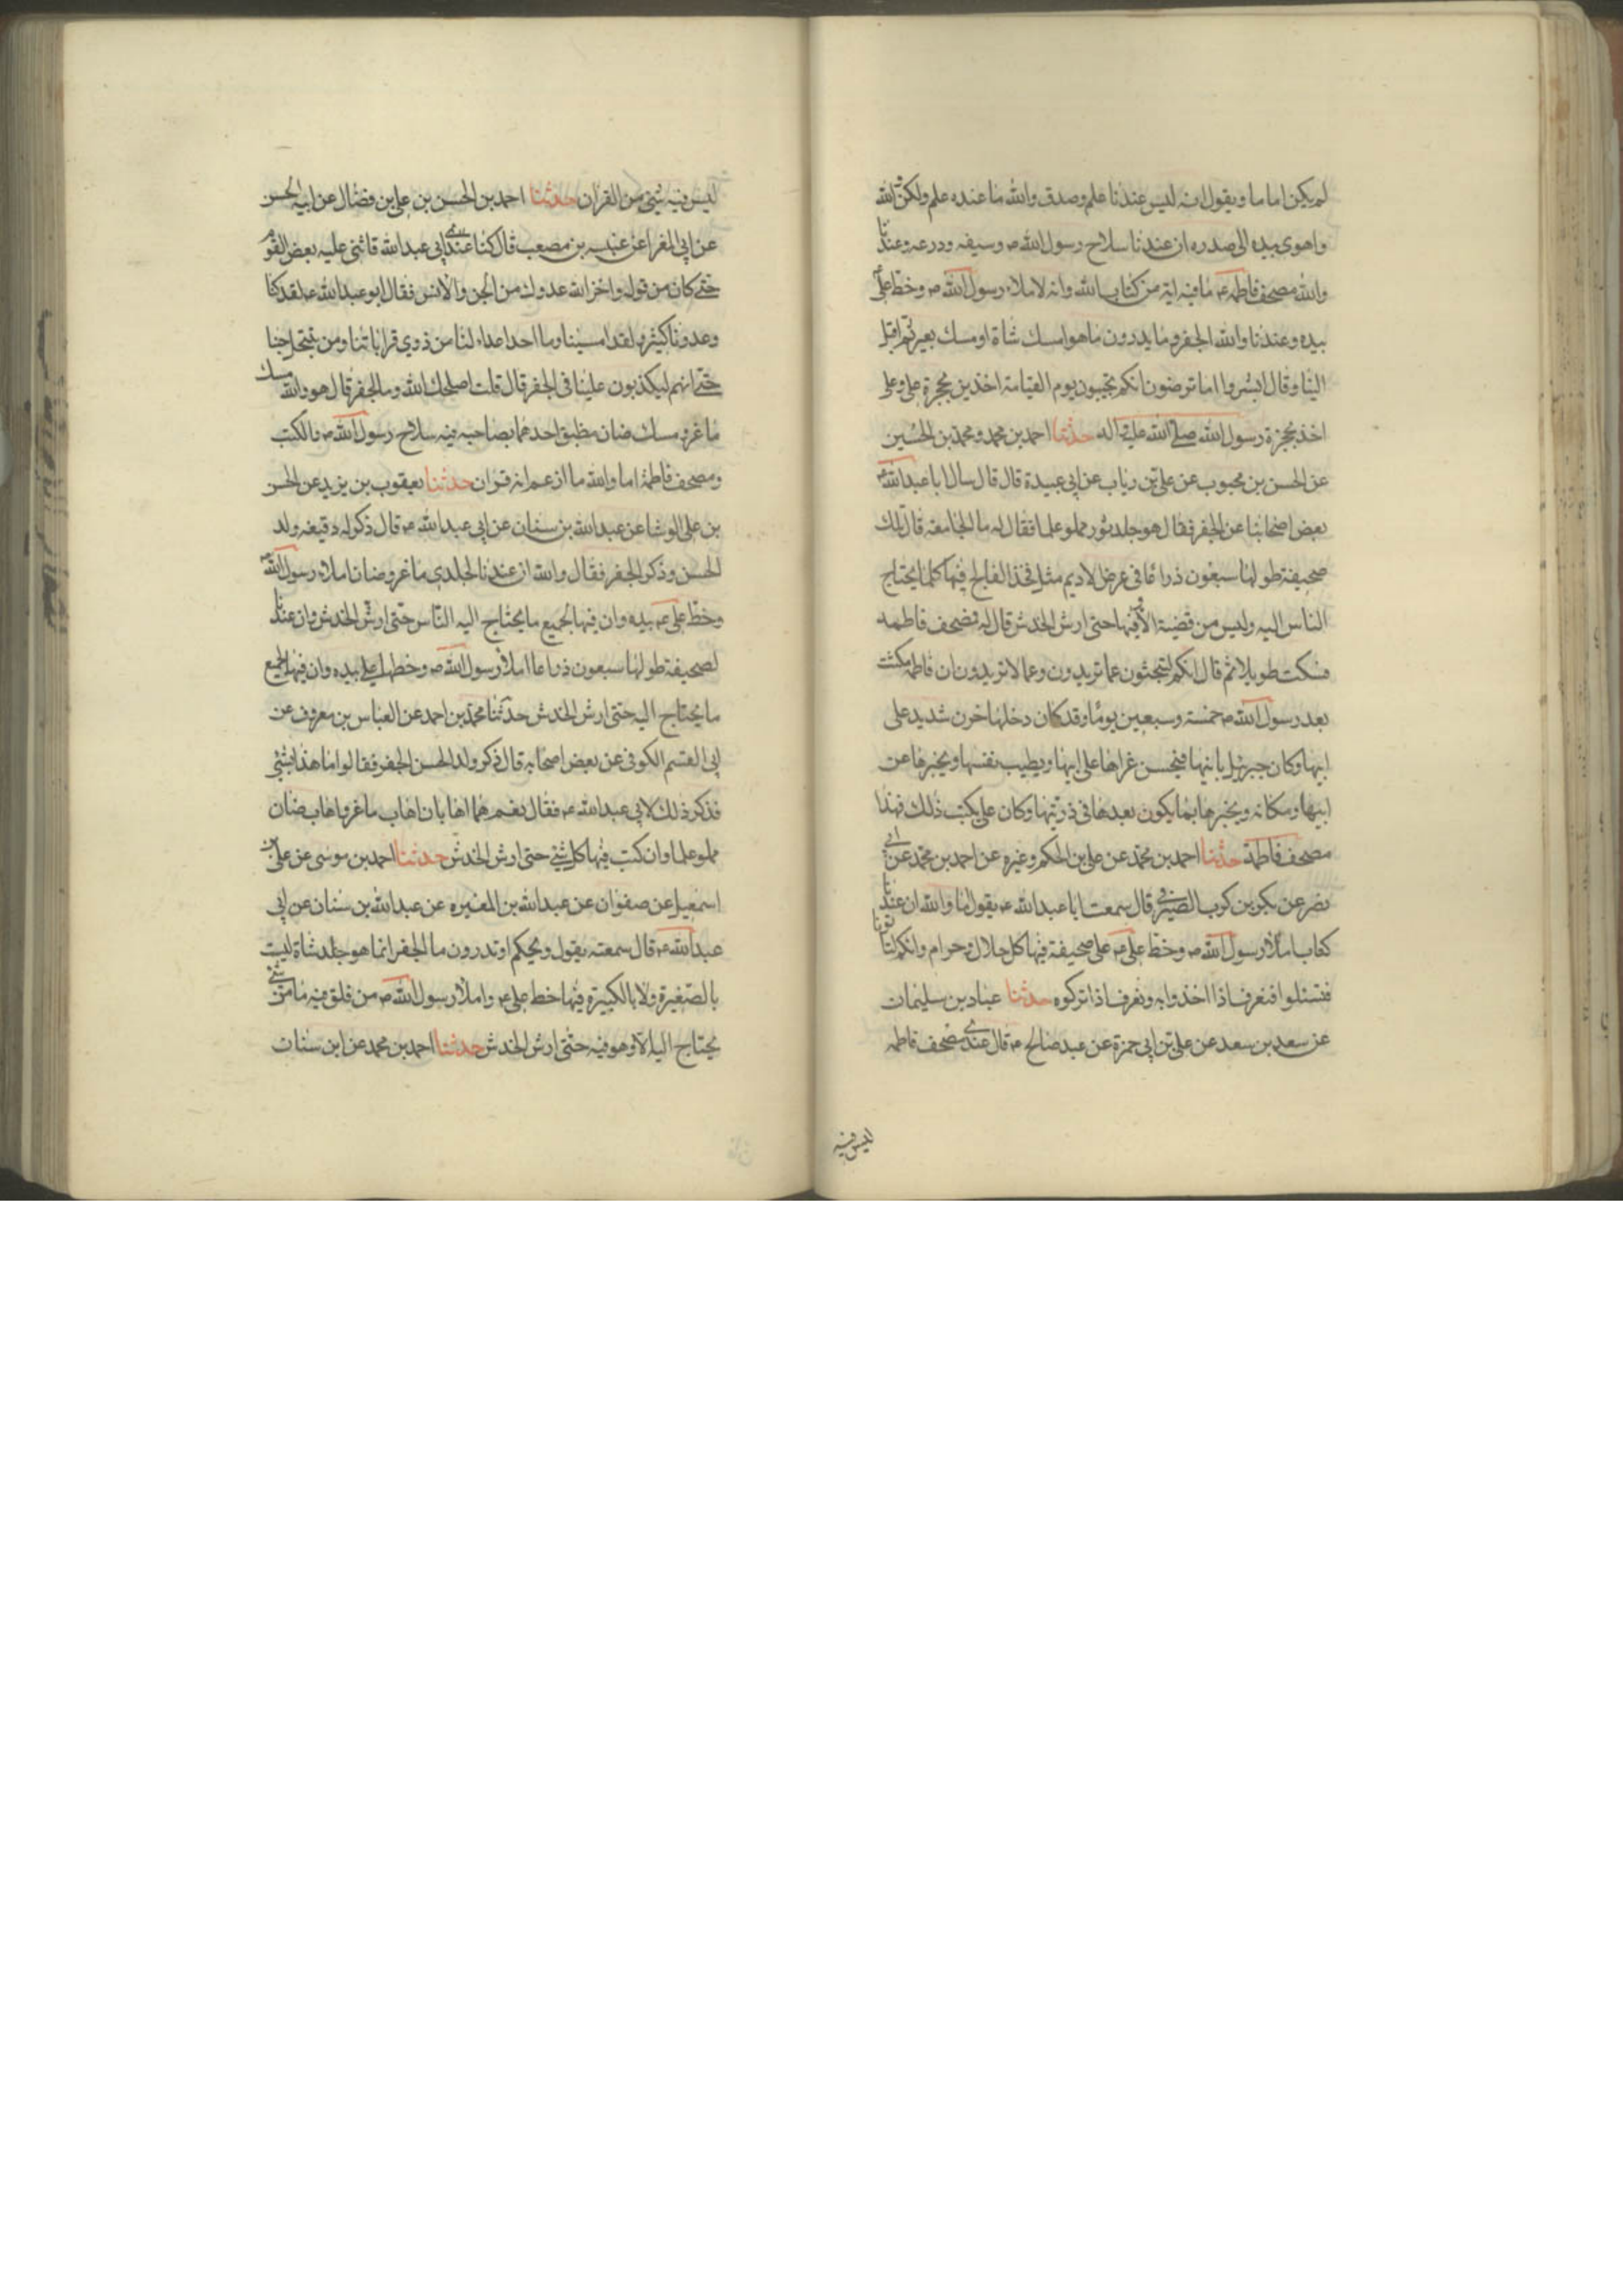 لم يكن اماما ويقول انه ليس عندنا علم وصدق والله ما عنده علم ولكن والله
واهوى بيده الى صدره ان عندنا سلاح رسول الله ص وسيفه ودرعه وعندنا
والله مصحف فاطمه ع ما فيه اية من كتاب الله وانه لاملاء رسول الله ص وخط علي
بيده وعندنا والله الجفر وما يدرون ما هو امسك شاة او مسك بعير ثم اقبل
الينا وقال ابشروا اما ترضون انكم تجيبون يوم القيامة اخذين بحجزة علي وعلى
اخذ بحجزة رسول الله صلى الله عليه واله حدثنا احمد بن محمد ومحمد بن الحسين
عن الحسن بن محبوب عن علي بن رياب عن ابي عبيدة قال قال سال ابا عبد الله ع
بعض اصحابنا عن الجفر فقال هو جلد ثور مملو علما فقال له ما الجامعة قال تلك
صحيفة طولها سبعون ذراعا في عرض الاديم مثل فخذ الفالج فيها كلما يحتاج
الناس اليه وليس من قضية الا وفيها حتى ارش الخدش قال له فمصحف فاطمه
فسكت طويلا ثم قال انكم لتبحثون عما تريدون وعما لا تريدون ان فاطمه مكثت
بعد رسول الله ص خمسة وسبعين يوما وقد كان دخلها حزن شديد على
ابيها وكان جبرئيل ياتيها فيحسن عزاها على ابيها ويطيب نفسها ويخبرها عن
ابيها ومكانه ويخبرها بما يكون بعدها في ذريتها وكان علي يكتب ذلك فهذا
مصحف فاطمة حدثنا احمد بن محمد عن علي بن الحكم وغيره عن احمد بن محمد عن ابي
نصر عن بكر بن كرب الصيرفي قال سمعت ابا عبد الله ع يقول اما والله ان عندنا
كتاب املاء رسول الله ص وخط علي ع على صحيفة فيها كل حلال وحرام وانكم لتاتونا
فتسئلوا فنعرف اذا اخذوا به ونعرف اذا تركوه حدثنا عباد بن سليمان
عن سعد بن سعد عن علي بن ابي حمزة عن عبد صالح ع قال عندي مصحف فاطمه
ليس فيه
ليس فيه شيئ من القران حدثنا احمد بن الحسن بن علي بن فضال عن ابيه الحسن
عن ابي المغرا عن عنبسه بن مصعب قال كنا عند ابي عبد الله فاثنى عليه بعض القوم
حتى كان من قوله واخز الله عدوك من الجن والانس فقال ابو عبد الله ع لقد كنا
وعدونا كثير ولقد امسينا وما احد اعداء لنا من ذوي قراباتنا ومن ينتحل حبنا
حتى انهم ليكذبون علينا في الجفر قال قلت اصلحك الله وما الجفر قال هو والله مسك
ماعز ومسك ضان مطبق احدهما بصاحبه فيه سلاح رسول الله ص والكتب
ومصحف فاطمة اما والله ما ازعم انه قران حدثنا يعقوب بن يزيد عن الحسن
بن علي الوشا عن عبد الله بن سنان عن ابي عبد الله ع قال ذكر له وقيعه ولد
الحسن وذكر الجفر فقال والله ان عندنا لجلدي ماعز وضان املاء رسول الله ص
وخط علي ع بيده وان فيها لجميع ما يحتاج اليه الناس حتى ارش الخدش وان عندنا
لصحيفة طولها سبعون ذراعا املاء رسول الله ص وخطها علي بيده وان فيها لجميع
ما يحتاج اليه حتى ارش الخدش حدثنا محمد بن احمد عن العباس بن معروف عن
ابي القسم الكوفي عن بعض اصحابه قال ذكر ولد الحسن الجفر فقالوا ما هذا بشئ
فذكر ذلك لابي عبد الله ع فقال نعم هما اهابان اهاب ماعز واهاب ضان
مملو علما وان كتب فيها كل شئ حتى ارش الخدش حدثنا احمد بن موسى عن علي بن
اسمعيل عن صفوان عن عبد الله بن المغيره عن عبد الله بن سنان عن ابي
عبد الله ع قال سمعته يقول ويحكم اوتدرون ما الجفر انما هو جلد شاة ليست
بالصغيرة ولا بالكبيرة فيها خط علي ع واملاء رسول الله ص من فلق فيه ما من شئ
يحتاج اليه الا وهو فيه حتى ارش الخدش حدثنا احمد بن محمد عن ابن سنان